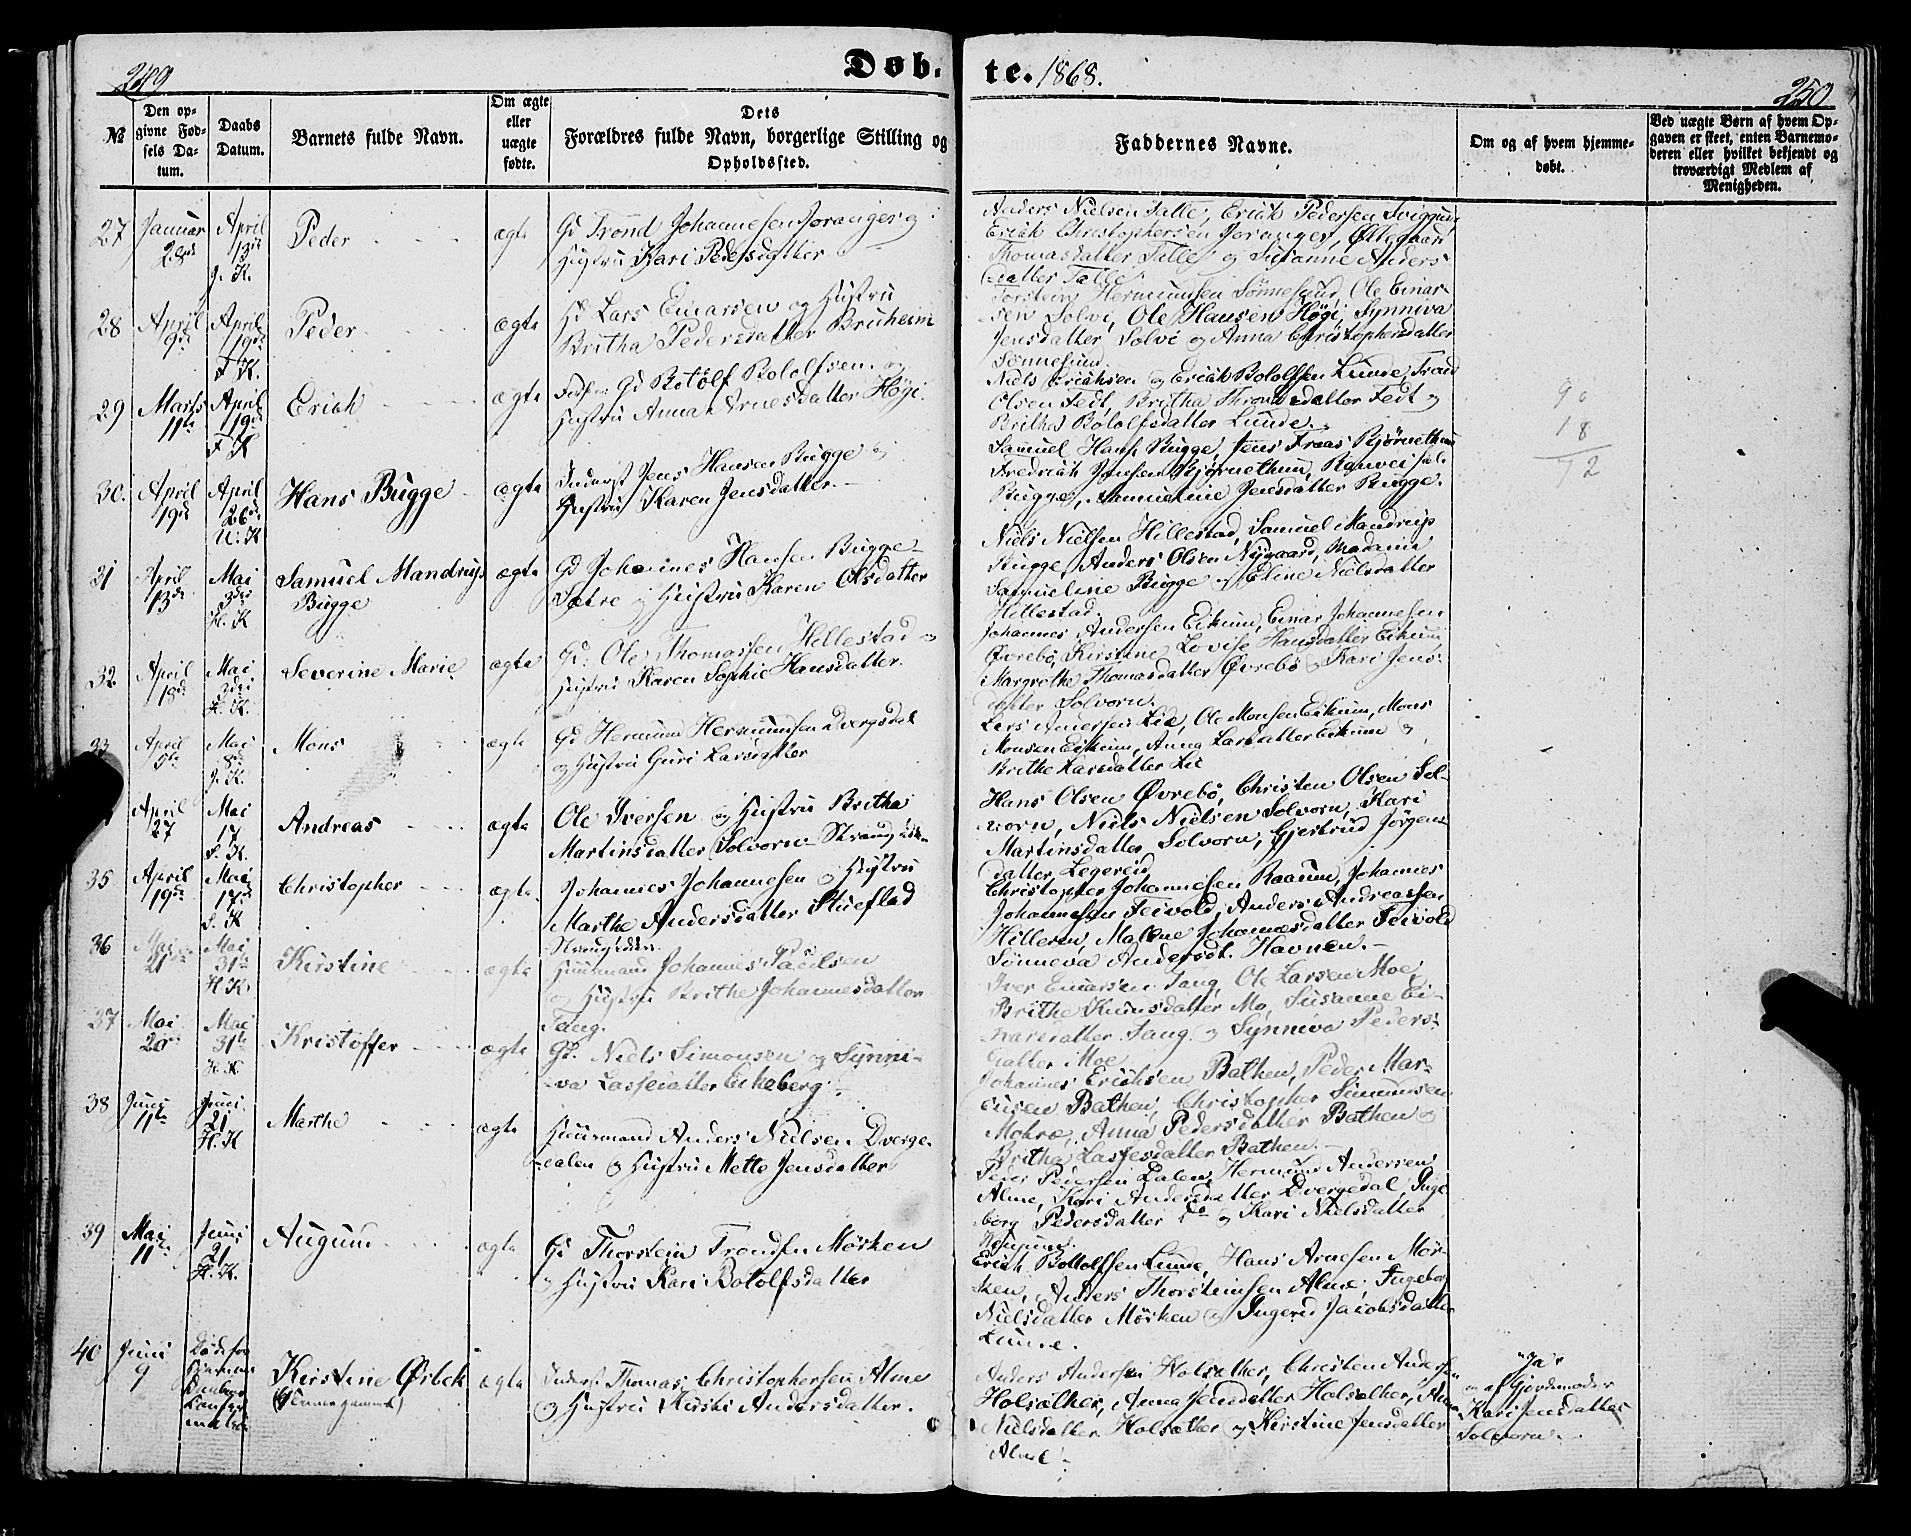 249
Døb-
te. 1868.
250
№
Den op-
givne Fød-
sels Da-
tum.
Daabs
Datum.
Barnets fulde Navn.
Om ægte
eller
uægte
fødte.
Dets
Forældres fulde Navn, borgerlige Stilling og
Opholdssted.
Faddernes Navne.
Om og af hvem hjemme-
døbt.
Ved uægte Børn af hvem Op-
gaven er skeet, enten Barnemo-
deren eller hvilket bekjendt og
troværdigt Medlem af
Menigheden.
27
Januar
28de
April
13de
J. K.
Peder
ægte
Gd Trond Johannesen Joranger og
Hustru Kari Pedersdatter
Anders Nielsen Talle, Erick Pedersen Sviggum,
Erick Christophersen Joranger,
Thomasdatter Talle og Susanne Anders
datter Talle
28
April
9de
April
19de
F. K.
Peder
ægte
Gd Lars Einarsen og Hustru
Britha Pedersdatter Bruheim
Torstein Hermundsen Sönnesund, Ole Einar-
sen Solvi, Ole Hansen Högi, Synneva
Jensdatter Solvi og Anna Christophersdatter
Sönnesund.
29
Marts
11te
April
19de
F. K
Erick
ægte
Gd Botolf Bololfsen og
Hustru Anna Arnesdatter Högi
Niels Erichsen og Erick Bololfsen Lunde, Trond
Olsen Fedt, Britha Thronddatter Fedt og
Britha Bololfsdatter Lunde.
90
18
72
30.
April
19de
April
26de
U. K
Hans Bugge
ægte
Inderst Jens Hansen Bugge og
Hustru Karen Jensdatter.
Samuel Hans Bugge, Jens Fraas Bjørnethun
Fredrick Jensen Bjørnethun, Ranvei
Bugge, Samueline Jensdatter Bugge.
31
April
13de
Mai
3die
H. K
Samuel Mandrup
Bugge
ægte
Gd Johannes Hansen Bugge
Sætre og Hustru Karen Olsdatter
Niels Nielsen Hillestad, Samuel Mandrup
Bugge, Anders Olsen Nygaard, Madame
Samueline Bugge og Eline Nielsdatter
Hillestad.
32
April
18de
Mai
3die
H. K.
Severine Marie
ægte
Gd. Ole Thomassen Hillestad og
Hustru Karen Sophie Hansdatter.
Johannes Andersen Eikum, Einar Johannesen
Øvrebö, Kirstine Lovise Hansdatter Eikum,
Margrethe Thomasdatter Øvrebö og Kari Jens-
datter Solvorn.
33
April
5te
Mai
8de
J. K.
Mons
ægte
Gd Hermund Hermundsen Dvergsdal
og Hustru Guri Larsdatter
Lars Andersen Lie, Ole Monsen Eikum, Mons
Monsen Eikum, Anna Larsdatter Eikum og
Brithe Larsdatter Lie
April
27
Mai
17
S. K.
Andreas
ægte
Ole Iversen og Hustru Britha
Martinsdatter Solvorn Strandsidder
Hans Olsen Øvrebö, Christen Olsen Sol-
vorn, Niels Nielsen Solvorn, Kari
Martinsdatter, Solvorn, Gjertrud Jörgens
datter, Legereid
35
April
19de
Mai
17de
S. K
Christopher
ægte
Johannes Johannesen og Hustru
Marthe Andersdatter Stueflad
Strandsidder.
Christopher Johannesen Raaum, Johannes
Johannesen Feivold, Anders Andreassen
Hilleren, Malene Johannesdatter Feivold
Sönneva Andersdt. Havnen.
36
Mai
21
Mai
31te
H. K.
Kirstine
ægte
Huusmand Johannes Paulsen
og Hustru Brithe Johannesdatter
Fang.
Iver Einarsen Fang, Ole Larsen Moe,
Brithe Knudsdatter Mo, Susanne Ei-
narsdatter Fang og Synneva Peders-
datter Moe
37
Mai
20de
Mai
31te
H. K
Kristoffer
ægte
Gd. Niels Simonsen og Synni-
va Lassedatter Eikeberg
Johannes Erichsen Bathen, Peder Mar-
cusen Bathen, Christopher Simonsen
Mohre, Anna Pedersdatter Bathen og
Britha Lassesdatter Bathen.
38
Juni
11te
Juni
21
H. K
Marthe
ægte
Huusmand Anders Nielsen Dvergs-
dalen og Hustru Mette Jensdatter
Peder Pedersen Dalen, Hermund Andersen
Alme, Kari Andersdatter Dvergsdal, Inge
borg Pedersdatter do og Kari Nielsdatter
39
Mai
11te
Juni
21
H. K.
Augum
ægte
Gd Thorstein Trondsen Mörken
og Hustru Kari Botolfsdatter
Erick Bottolfsen Lunde, Hans Arnesen Mör-
ken, Anders Thorsteinsen Alme, Ingeborg
Nielsdatter Mörken og Ingerid Jacobsdatter
Lunde.
40
Juni
9
Døde for
Kirstine Ørbek
(Hjemmedöbt)
ægte
Inderst Thomas Christophersen Alme
og Hustru Kirsti Andersdatter.
Anders Andersen Holsæther, Christen Andersen
Holsæther, Anna Jensdatter Holsæther, Anna
Nielsdatter Holsæther og Kirstine Jensdatter
Alme
"Ja"
af Gjordemoder
Kari Jensdatter
Solvorn.